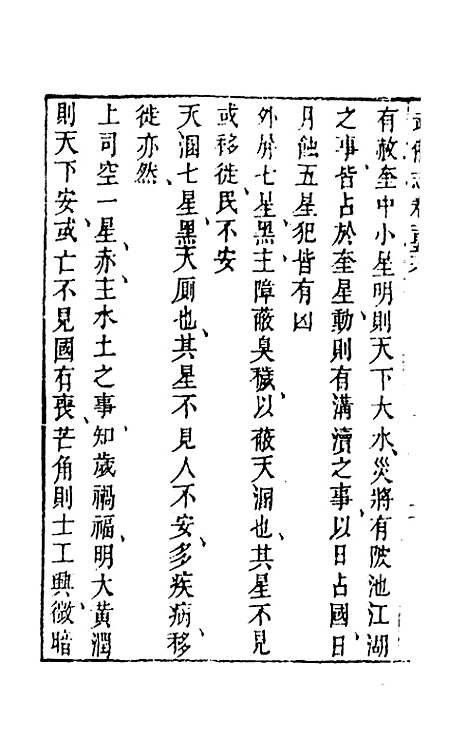 有赦奎中小星明則天下大水災將有陂池江湖
之事皆占於奎星動則有溝瀆之事以日占國日
月蝕五星犯皆有凶
外屏七星黑主障蔽臭穢以蔽天溷也其星不見
或移徙民不安
天溷七星黑天厠也其星不見人不安多疾病移
徙亦然
上司空一星赤主水土之事知歲禍福明大黃潤
則天下安或亡不見國有喪芒角則士工興微暗